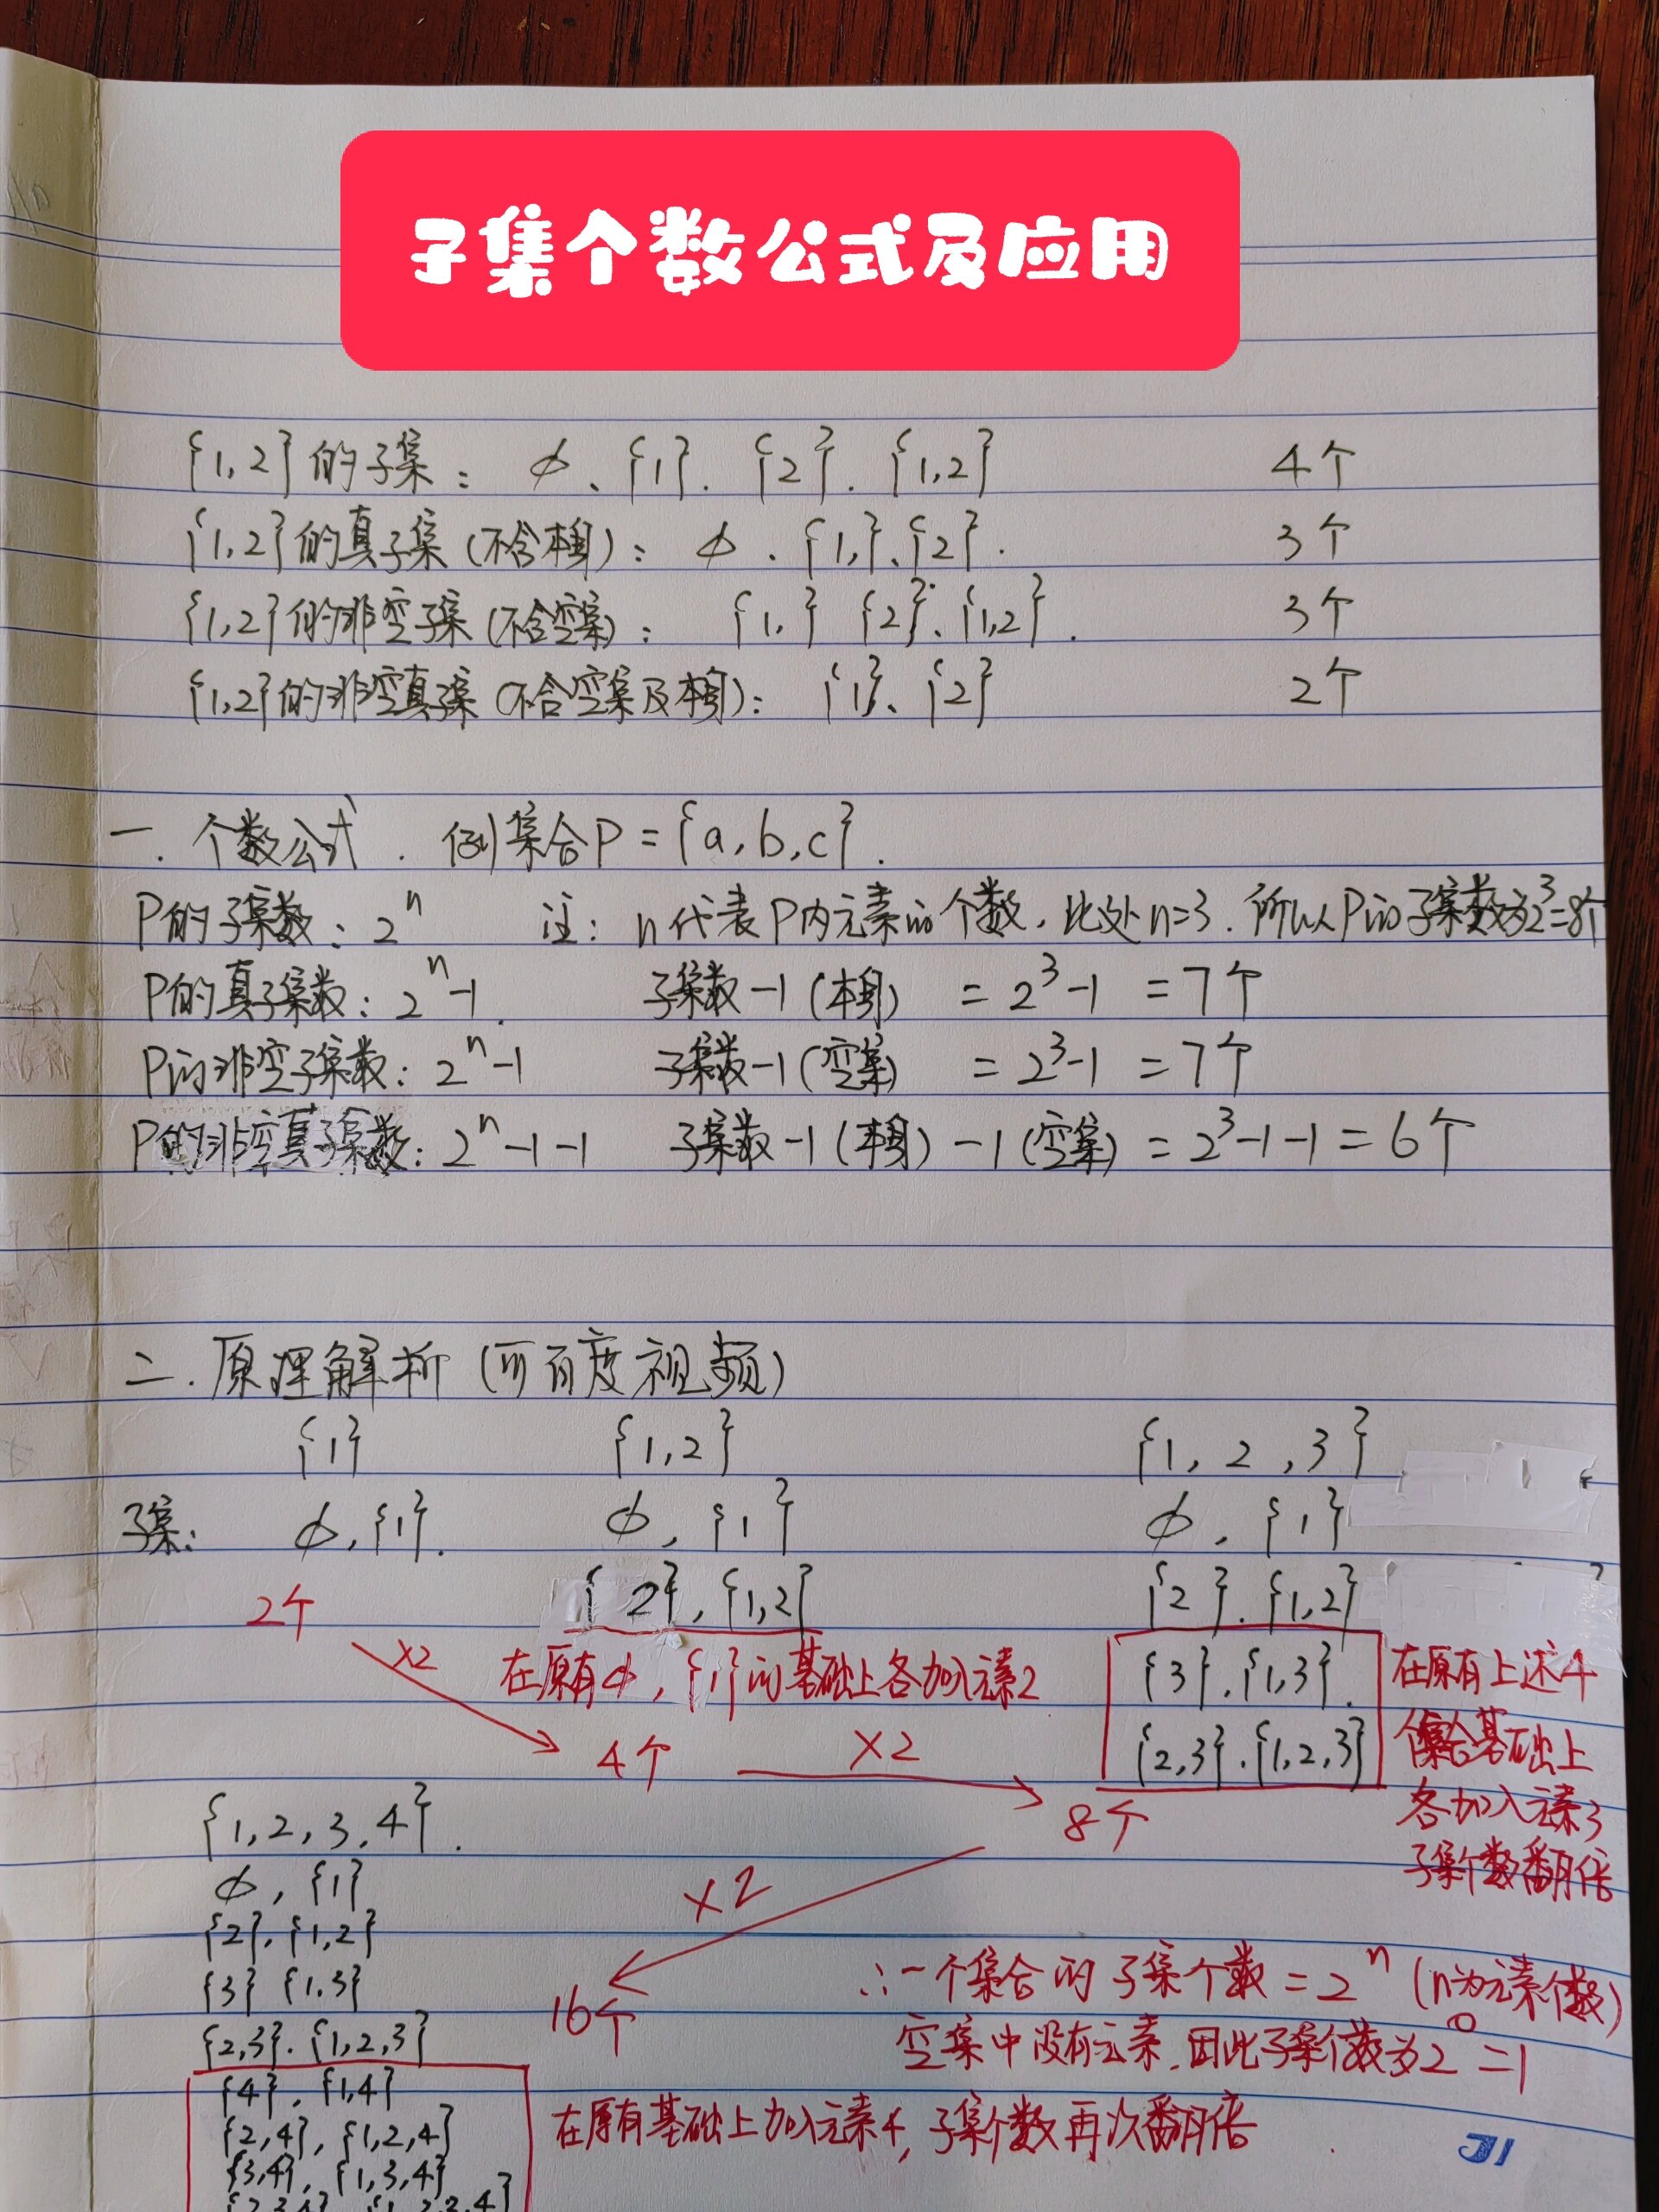 子集个数公式及应用
{1,2}的子集: ϕ、{1}. {2}. {1,2} 4个
{1,2}的真子集(不含本身): ϕ、{1,}、{2}. 3个
{1,2}的非空子集(不含空集): {1,} {2}、{1,2}. 3个
{1,2}的非空真子集(不含空集及本身): {1}、{2} 2个
一. 个数公式. 例集合P={a,b,c}.
P的子集数: 2ⁿ 注: n代表P内元素的个数, 此处n=3. 所以P的子集数为2³=8个
P的真子集数: 2ⁿ-1. 子集数-1(本身) =2³-1 =7个
P的非空子集数: 2ⁿ-1 子集数-1(空集) =2³-1 =7个
P的非空真子集数: 2ⁿ-1-1 子集数-1(本身)-1(空集)=2³-1-1=6个
二. 原理解析(可百度视频)
{1} {1,2} {1,2,3}
子集: ϕ,{1}. ϕ,{1} ϕ,{1}
2个 {2},{1,2} {2}.{1,2}
×2 在原有ϕ,{1}的基础上各加入元素2 {3},{1,3}. 在原有上述4
4个 ×2 {2,3}.{1,2,3} 个集合基础上
{1,2,3,4}. 8个 各加入元素3
ϕ,{1} ×2 子集个数翻倍
{2},{1,2}
{3} {1.3} 16个 ∴一个集合的子集个数=2ⁿ(n为元素个数)
{2,3}.{1,2,3} 空集中没有元素,因此子集个数为2⁰=1
{4},{1,4} 在原有基础上加入元素4,子集个数再次翻倍
{2,4},{1,2,4}
{3,4},{1,3,4}
{2,3,4} {1,2,3,4}